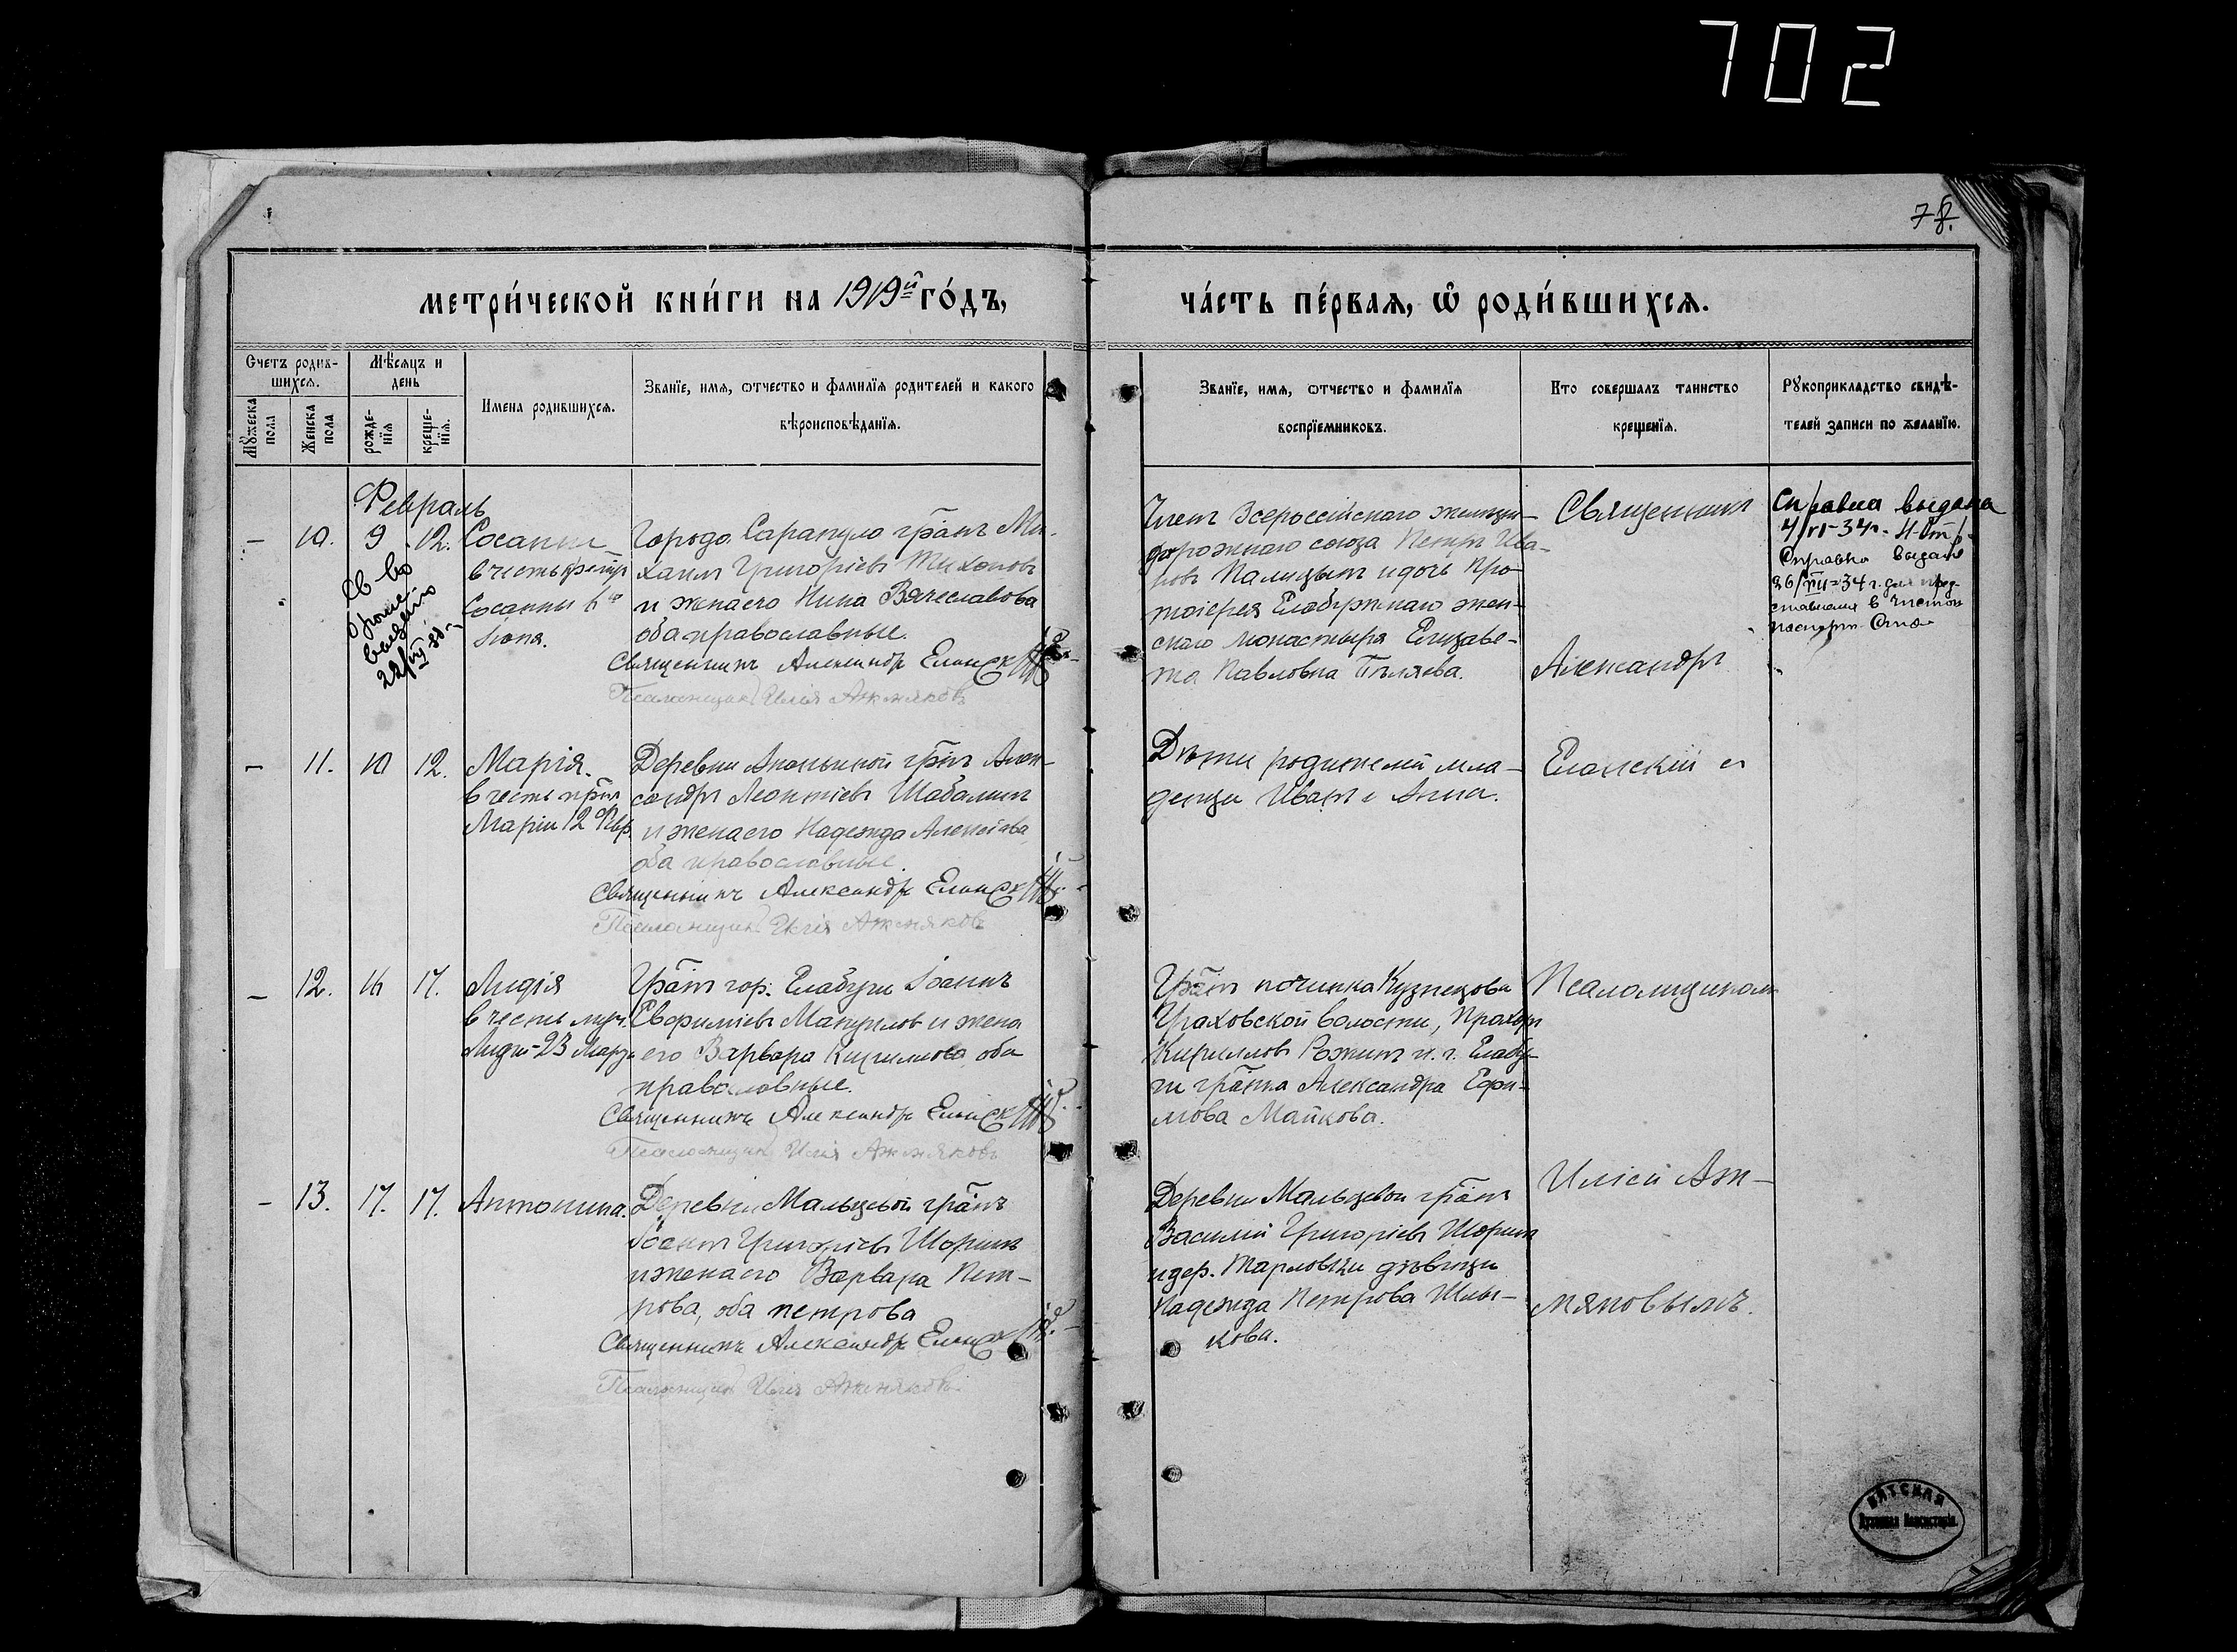 702
78.
метри́ческой кни́ги на 1919й го́дъ,
ча́сть пе́рвая, ѿ роди́вшихся.
Счетъ родив-
шихся.
Мѣсяцъ и
день
Мꙋжеска
пола
Женска
пола
рожде-
нїя
креще-
нїя.
Имена родившихся.
Званїе, имя, ѿтчество и фамилїя родителей и какого
вѣроисповѣданїя.
Званїе, имя, ѿтчество и фамилїя
воспрїемниковъ.
Кто совершалъ таинство
крещенїя.
Рꙋкоприкладство свидѣ-
телей записи по желанїю.
Февраль
— 10. 9 12. Сосанна
в честь
Сосанны
Св-во
выдано
22/VII
Города Сарапула гр̄анъ Ми-
хаилъ Григорiевъ Тихоновъ
и жена его Нина Вячеславова
оба православные.
Священникъ Александръ Еланскiй
Псаломщикъ Илiя Ажмяковъ
Членъ Всероссiйскаго железно-
дорожнаго союза Петръ Ива-
новъ Палицынъ и дочь про-
тоiерея Елабужскаго жен-
скаго монастыря Елизаве-
та Павловна Бѣляева.
Священникъ
Александръ
Справка выдана
4/VI-34г.
Справка выдана
26/VII-34 г. для пред-
ставления в
— 11. 10 12. Марiя.
в честь прп
Марiи 12 Февр.
Деревни Ананьиной гр̄нъ Алек-
сандръ Леонтiевъ Шабалинъ
и жена его Надежда Алексiева
оба православные
Священникъ Александръ Еланскiй
Псаломщикъ Илiя Ажмяковъ
Дѣти родителей мла-
денца Иванъ и Анна.
Еланскiй съ
— 12. 16 17. Лидiя
в честь муч.
Лидiи-23 Марта
Гр̄анъ гор. Елабуги Iоаннъ
Евфимiевъ Мануилов и жена
его Варвара Кириллова, оба
православные.
Священникъ Александръ Еланскiй
Псаломщикъ Илiя Ажмяковъ
Гр̄анъ починка Кузнецова
Граховской волости, Прохоръ
Кирилловъ Рожинъ и г. Елабу-
ги гр̄анка Александра Ефи-
мова Майкова.
Псаломщикомъ
— 13. 17. 17. Антонина.
Деревни Мальцевой гр̄анъ
Iоаннъ Григорiевъ Шоринъ
и жена его Варвара Пет-
рова, оба петрова
Священникъ Александръ Еланскiй
Псаломщикъ Илiя Ажмяковъ
Деревни Мальцевой гр̄анъ
Василiй Григорiевъ Шоринъ
и дер. Тарловки дѣвица
Надежда Петрова Шиш-
кова.
Илiей Аж-
мяковымъ.
ВЯТСКАЯ
Духовная Консисторiя.